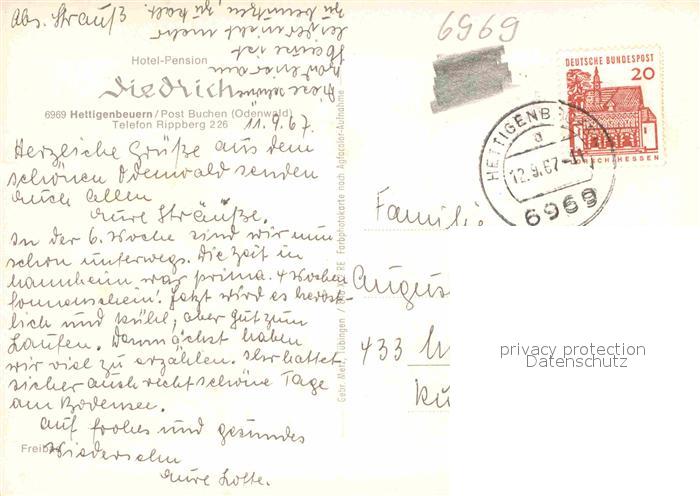 Abs. Strauß
Diese schöne
ist
leider nicht mehr
zu benützen, zu kalt.
Hotel-Pension
Diedrich
6969 Hettigenbeuern / Post Buchen (Odenwald)
Telefon Rippberg 226
11.9.67.
Herzliche Grüße aus dem
schönen Odenwald senden
Euch allen
Eure Sträuße.
In der 6. Woche sind wir nun
schon unterwegs. Die Zeit in
Mannheim war prima. 4 Wochen
Sonnenschein! Jetzt wird es herbst-
lich und kühl, aber gut zum
Laufen. Demnächst haben
wir viel zu erzählen. Ihr hattet
sicher auch recht schöne Tage
am Bodensee.
Auf frohes und gesundes
Wiedersehn
Eure Lotte.
Gebr. Metz, Tübingen
RE Farbphotokarte nach Agfacolor-Aufnahme
6969
DEUTSCHE BUNDESPOST
20
HESSEN
HETTIGENB
a
12.9.67
6969
Familie
Augus
433
privacy protection
Datenschutz